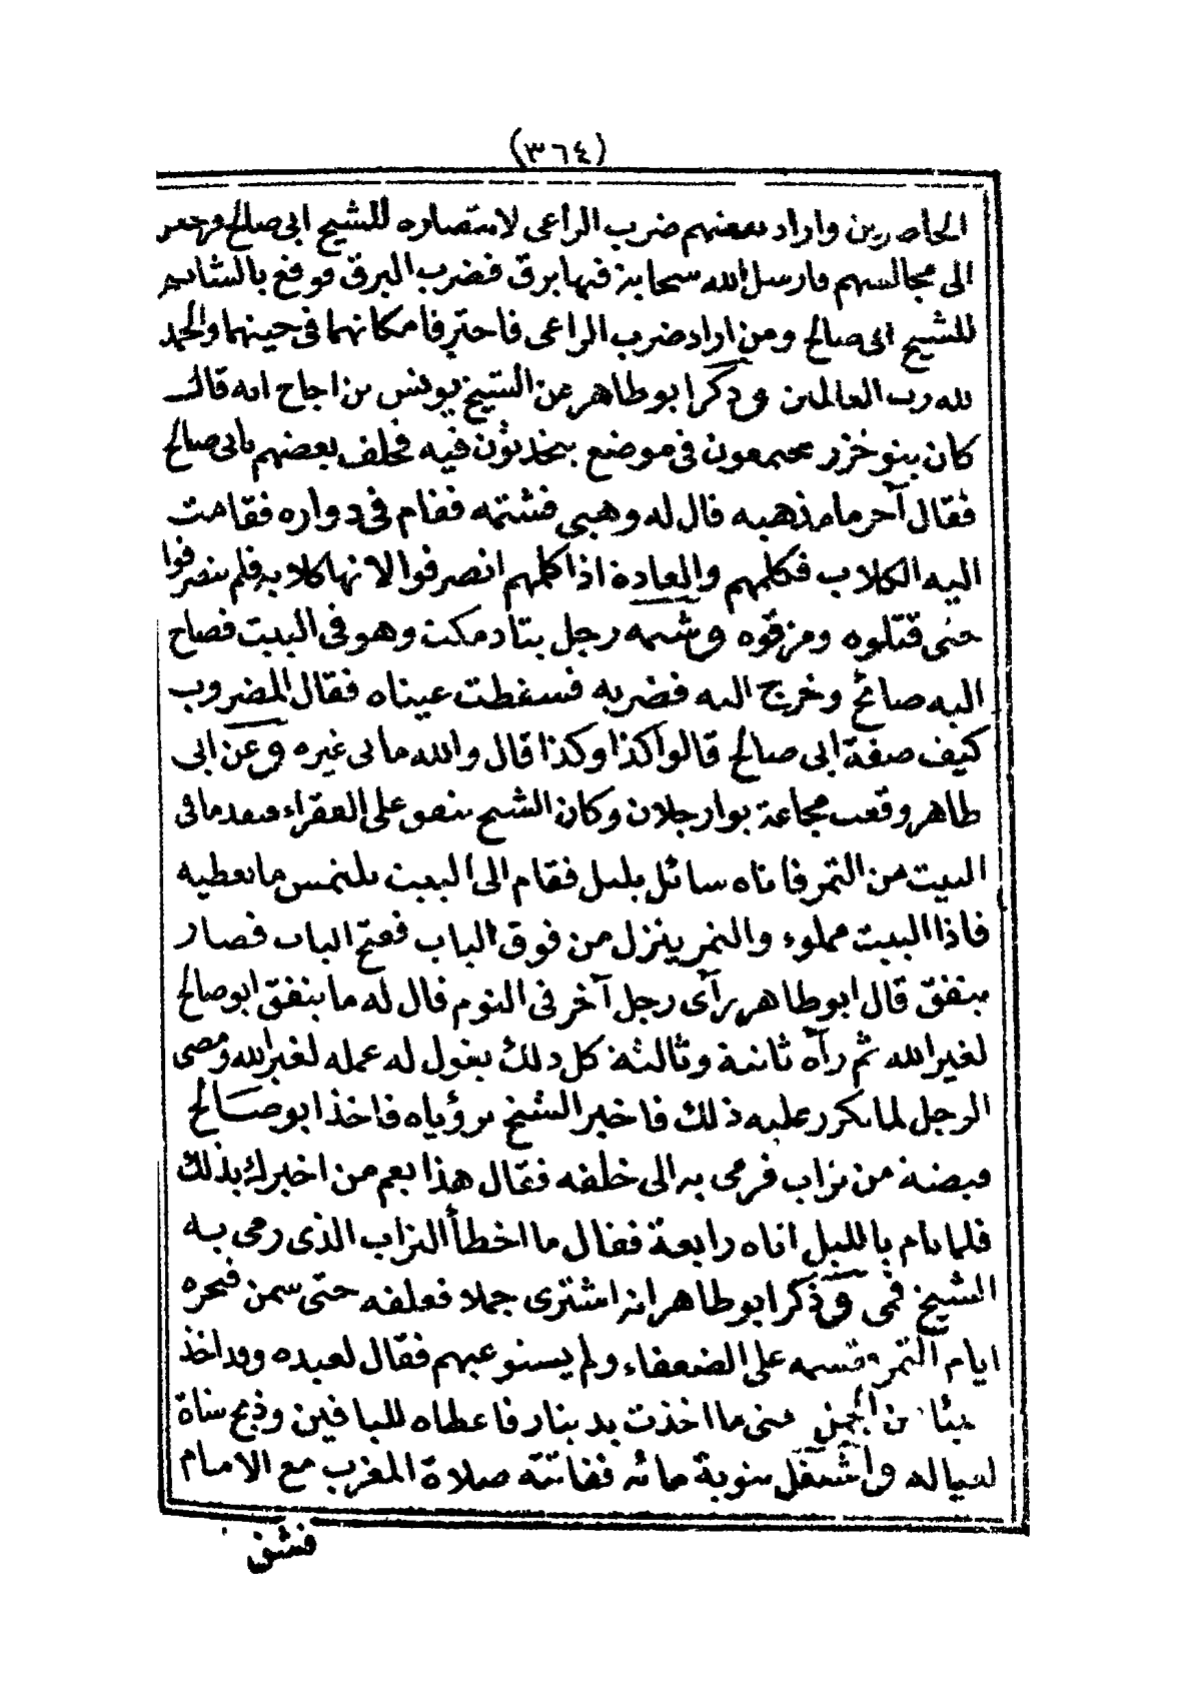 (٣٦٤)
الحاضرين واراد بعضهم ضرب الراعى لانتصاره للشيخ ابى صالح فرجعوا
الى مجالسهم فارسل الله سحابة فيها برق فضرب البرق فوقع بالشاتم
للشيخ ابى صالح ومن اراد ضرب الراعى فاحترقا مكانهما فى حينهما والحمد
لله رب العالمين وذكر ابو طاهر عن الشيخ يونس بن اجاح انه قال
كان بنو خزر مجتمعون فى موضع يتحدثون فيه فحلف بعضهم بابى صالح
فقال آخر ما مذهبه قال له وهبى فشتمه فقام فى دواره فقامت
اليه الكلاب فكلمهم والعادة اذا كلمهم انصرفوا لانها كلابه فلم ينصرفوا
حتى قتلوه ومزقوه وشتمه رجل بتادمكت وهو فى البيت فصاح
اليه صائح وخرج اليه فضربه فسقطت عيناه فقال المضروب
كيف صفة ابى صالح قالوا كذا وكذا قال والله ما بى غيره وعن ابى
طاهر وقعت مجاعة بوارجلان وكان الشيخ ينفق على الفقراء فنفد ما فى
البيت من التمر فاتاه سائل بليل فقام الى البيت يلتمس ما يعطيه
فاذا البيت مملوء والتمر ينزل من فوق الباب ففتح الباب فصار
ينفق قال ابو طاهر رأى رجل آخر فى النوم قال له ما ينفق ابو صالح
لغير الله ثم رآه ثانية وثالثة كل ذلك يقول له عمله لغير الله ومضى
الرجل لما تكرر عليه ذلك فاخبر الشيخ برؤياه فاخذ ابو صالح
قبضة من تراب فرمى به الى خلفه فقال هذا بعم من اخبرك بذلك
فلما نام بالليل اتاه رابعة فقال ما اخطأ التراب الذى رمى به
الشيخ فمى وذكر ابو طاهر انه اشترى جملا فعلفه حتى سمن فنحره
ايام التمر وقسمه على الضعفاء ولم يستوعبهم فقال لعبده وقد اخذ
شيئا من الجمل عنى ما اخذت بدينار فاعطاه للباقين وذبح شاة
لعياله واشتغل بنوبة مائه ففاتته صلاة المغرب مع الامام
فشق